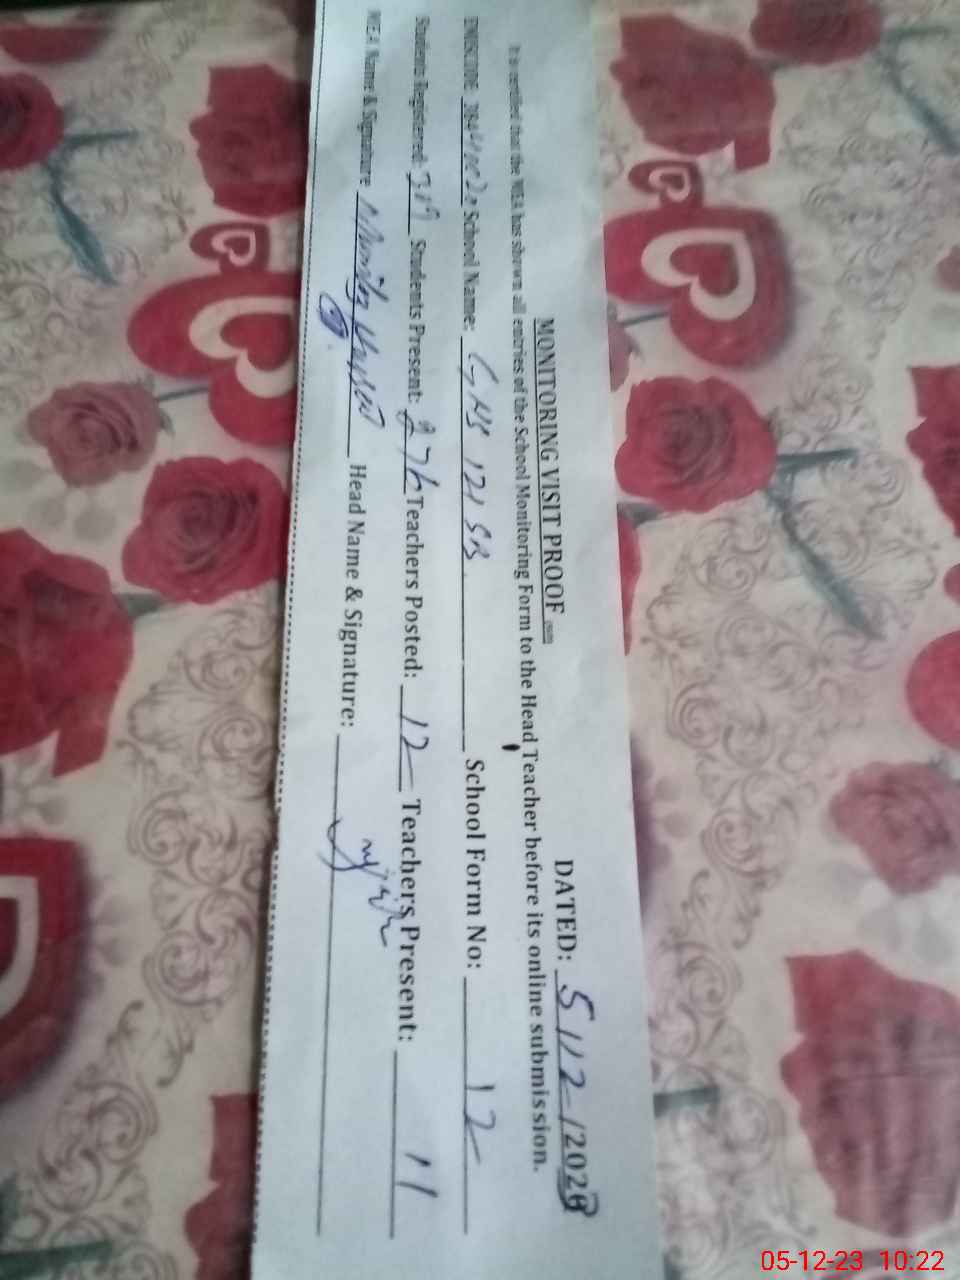 MONITORING VISIT PROOF
DATED: 5/12/2023
It is certified that the MEA has shown all entries of the School Monitoring Form to the Head Teacher before its online submission.
EMISCODE: School Name: GHS 121 SB School Form No: 12
Students Registered: 319 Students Present: 276 Teachers Posted: 12 Teachers Present: 11
MEA Name & Signature Head Name & Signature:
05-12-23 10:22